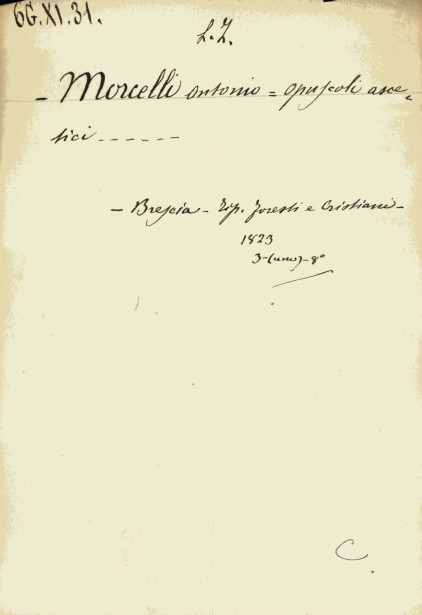 6G.XI.31.
L.Z.
- Morcelli Antonio = Opuscoli asce-
tici - - - - - -
- Brescia - Tip. Foresti e Cristiani -
1823
3-(uno)-8°
C